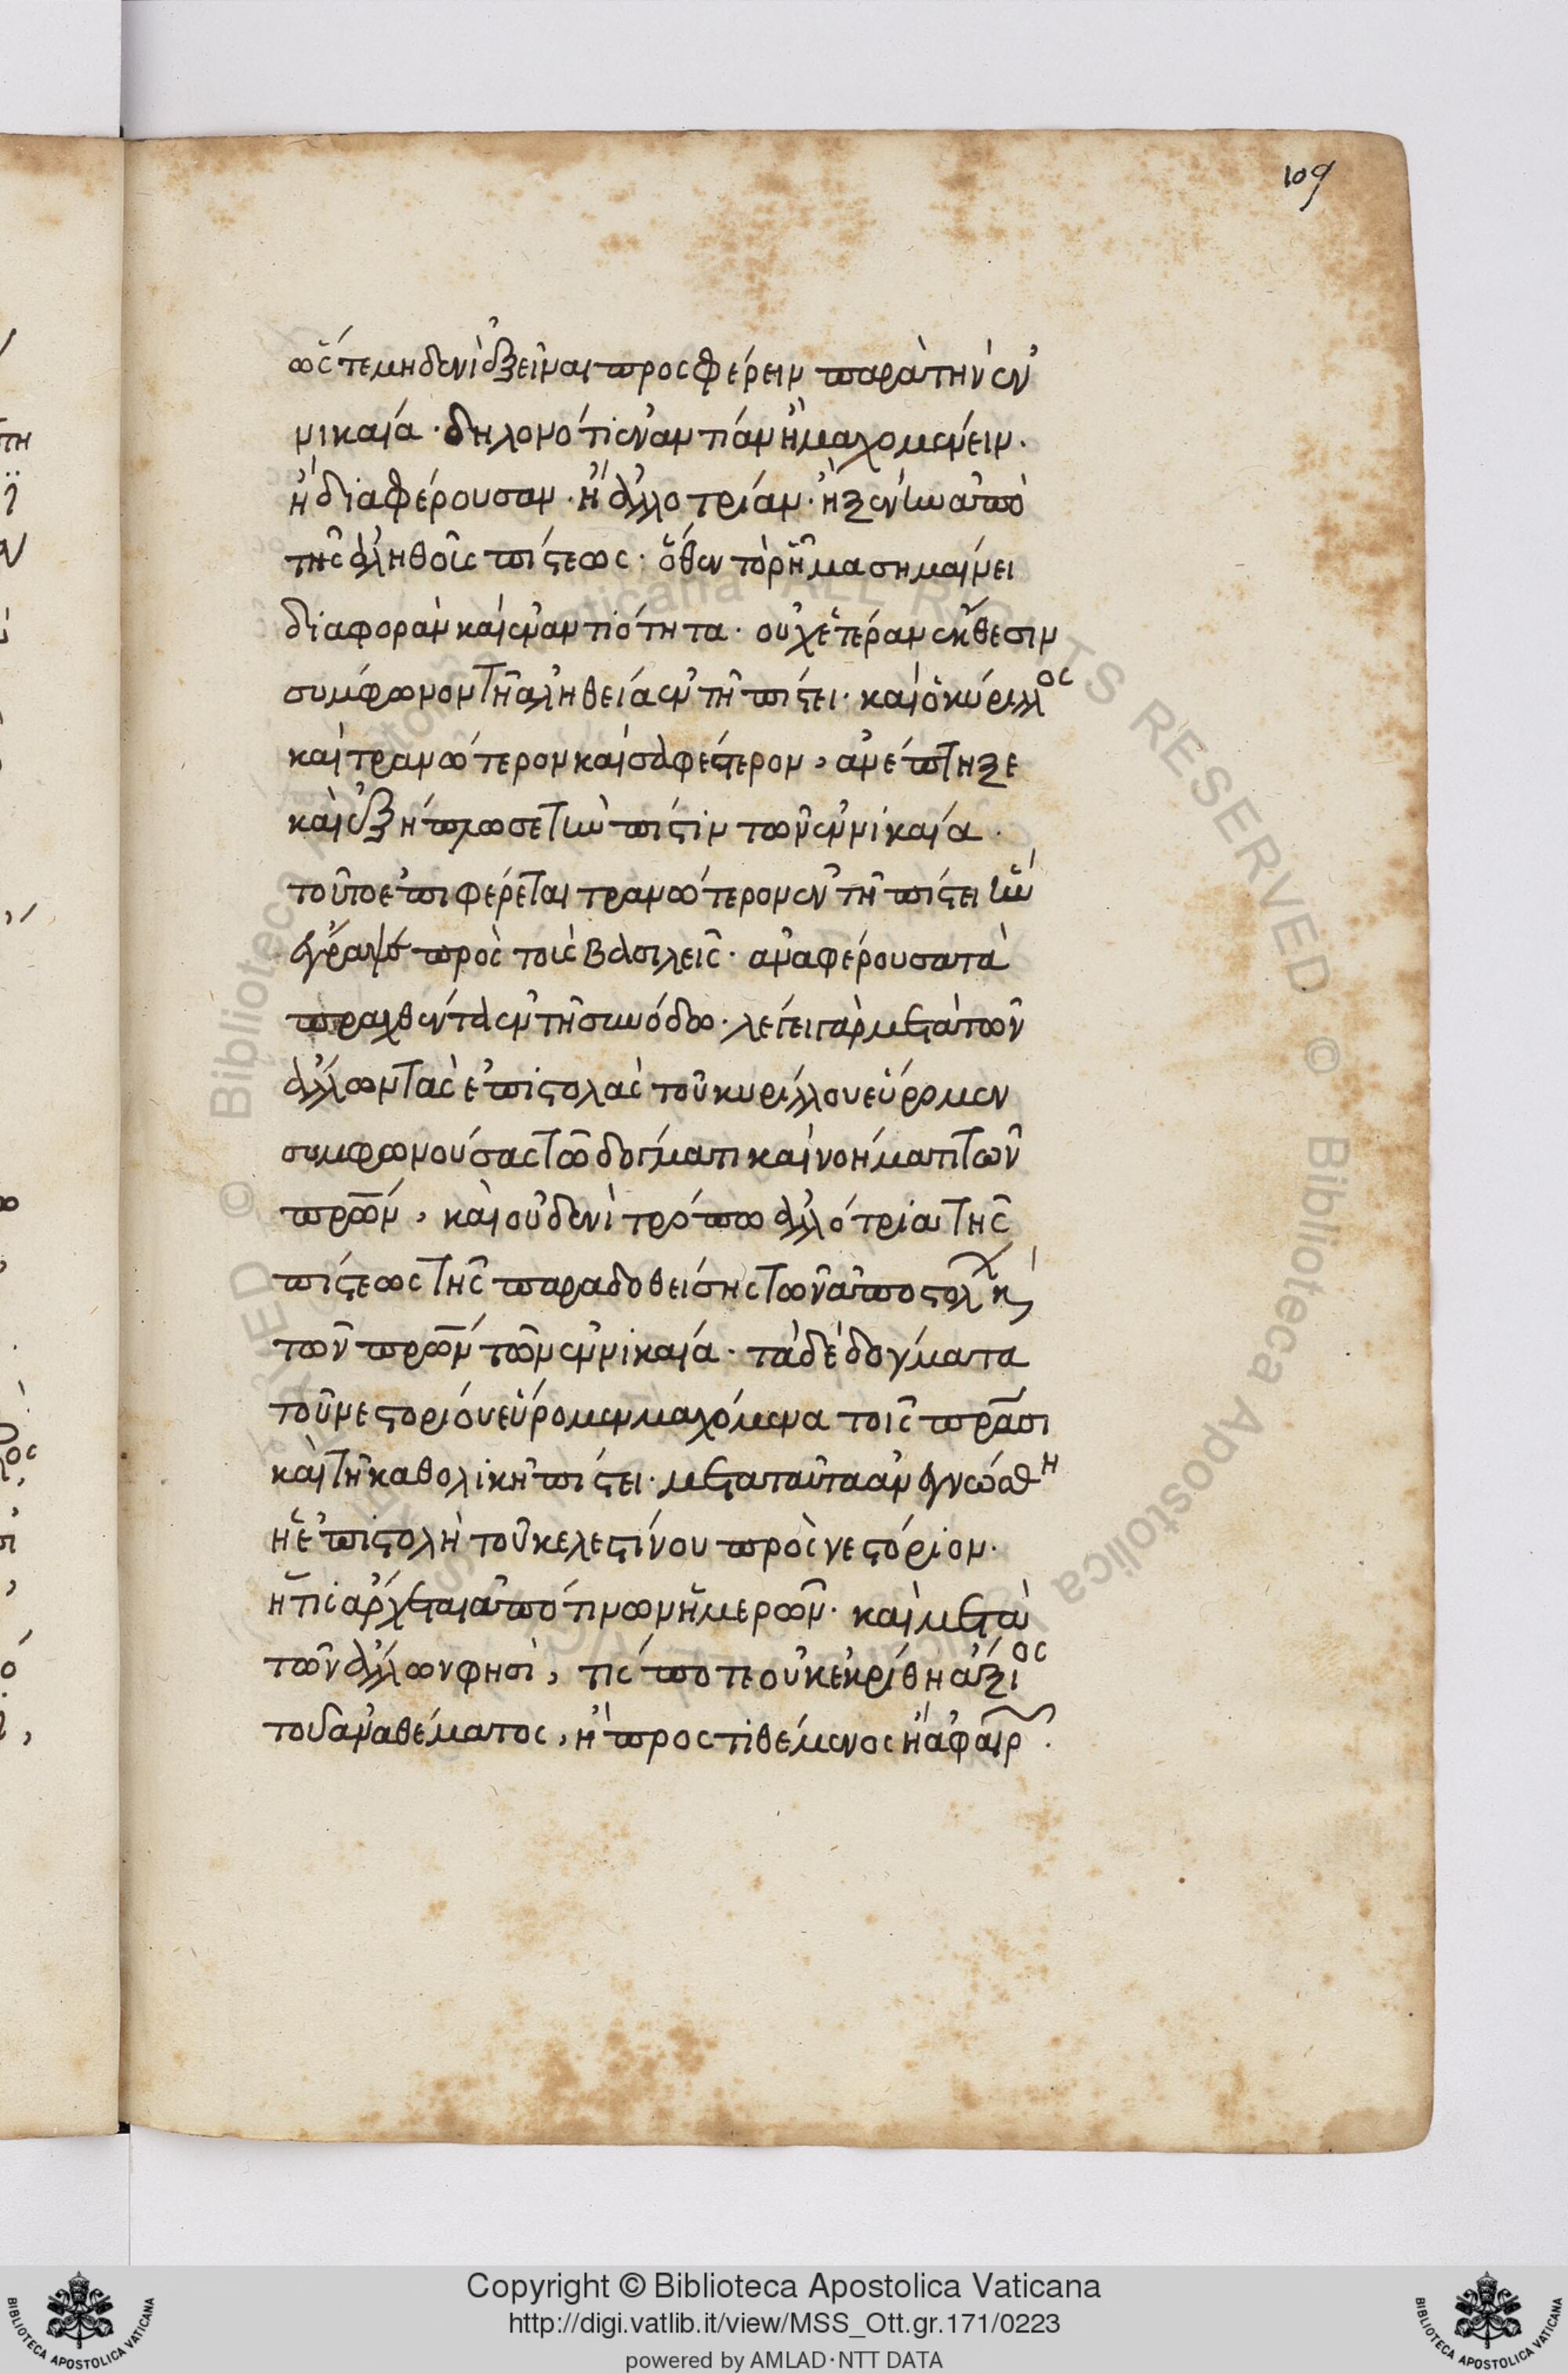 109
ὥς τε μηδενὶ ἐξεῖναι προσφέρειν παρὰ τὴν ἐν
νικαία· δηλονότι ἐναντίαν ἢ μαχομένην·
ἢ διαφέρουσαν· ἢ ἀλλοτρίαν· ἢ ξένην ἀπὸ
τῆς ἀληθοῦς πίστεως· ὅθεν τὸ ῥῆμα σημαίνει
διαφορὰν καὶ ἐναντιότητα· οὐχ ἑτέραν ἔκθεσιν
σύμφωνον τῆ ἀληθεία ἐν τῆ πίστει· καὶ ὁ κύριλλος
καὶ τρανώτερον καὶ σαφέστερον, ἀνέπτηξε
καὶ ἐξήπλωσε τὴν πίστιν τῶν ἐν νικαία·
τοῦτο ἐπιφέρεται τρανώτερον ἐν τῆ πίστει ἣν
ἔγραψε πρὸς τοὺς βασιλεῖς· ἀναφέρουσα τὰ
πραχθέντα ἐν τῆ συνόδω· λέγει γὰρ μετὰ τῶν
ἄλλων τὰς ἐπιστολὰς τοῦ κυρίλλου εὕρομεν
συμφωνούσας τῶ δόγματι καὶ νοήματι τῶν
πρων, καὶ οὐδενὶ τρόπω ἀλλότριαι τῆς
πίστεως τῆς παραδοθείσης τῶν ἀποστολχ κ
τῶν πρων τῶν ἐν νικαία· τὰ δὲ δόγματα
τοῦ νεστορίου εὕρομεν μαχόμενα τοῖς πρασι
καὶ τῆ καθολικῆ πίστει· μετὰ ταῦτα ἀνεγνώσθη
ἡ ἐπιστολὴ τοῦ κελεστίνου πρὸς νεστόριον·
ἥτις ἄρχεται ἀπό τινων ἡμερῶν· καὶ μετὰ
τῶν ἄλλων φησὶ, τίς ποτε οὐκ ἐκρίθη ἄξιος
τοῦ ἀναθέματος, ἢ προστιθέμενος ἢ ἀφαιρ·
Copyright © Biblioteca Apostolica Vaticana
http://digi.vatlib.it/view/MSS_Ott.gr.171/0223
powered by AMLAD·NTT DATA